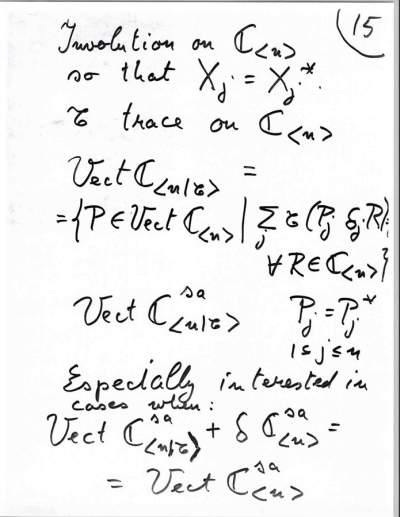 15
Involution on ℂ<n>
so that X_j = X_j^*.
τ trace on ℂ<n>
Vect ℂ<n|τ> =
= {P ∈ Vect ℂ<n> | Σ_j τ(P_j δ_j R)
∀ R ∈ ℂ<n>}
Vect ℂ^sa_<n|τ> P_j = P_j^*
1 ≤ j ≤ n
Especially interested in
cases when:
Vect ℂ^sa_<n|τ> + δ ℂ^sa_<n> =
= Vect ℂ^sa_<n>